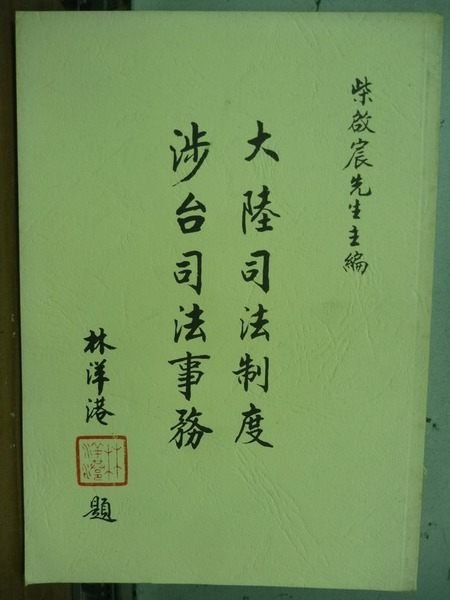 柴啟宸先生主編
大陸司法制度
涉台司法事務
林洋港
題